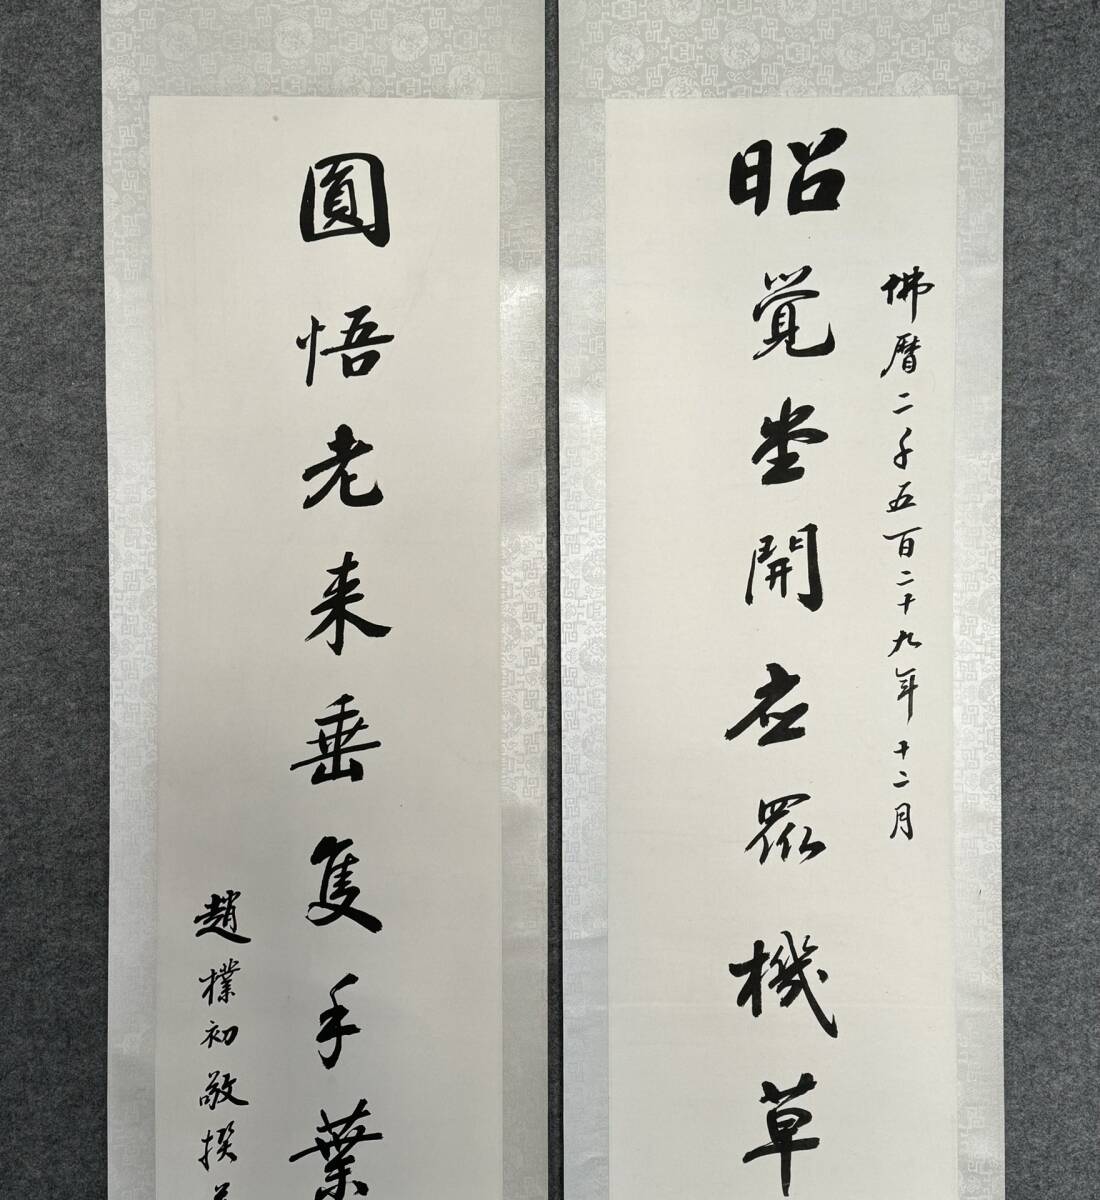 佛曆二千五百二十九年十二月
昭覺堂開应眾機草
圓悟老来垂隻手葉
趙樸初敬撰